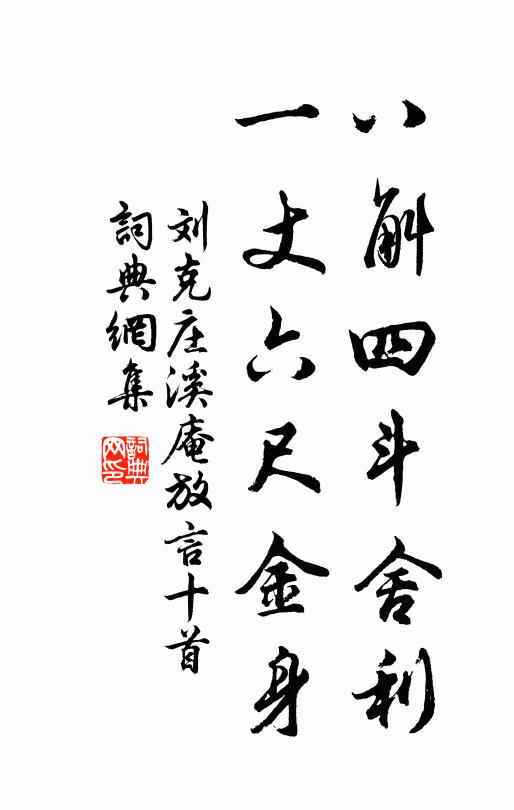 八斛四斗舍利
一丈六尺金身
刘克庄溪庵放言十首
詞典網集
詞典网印